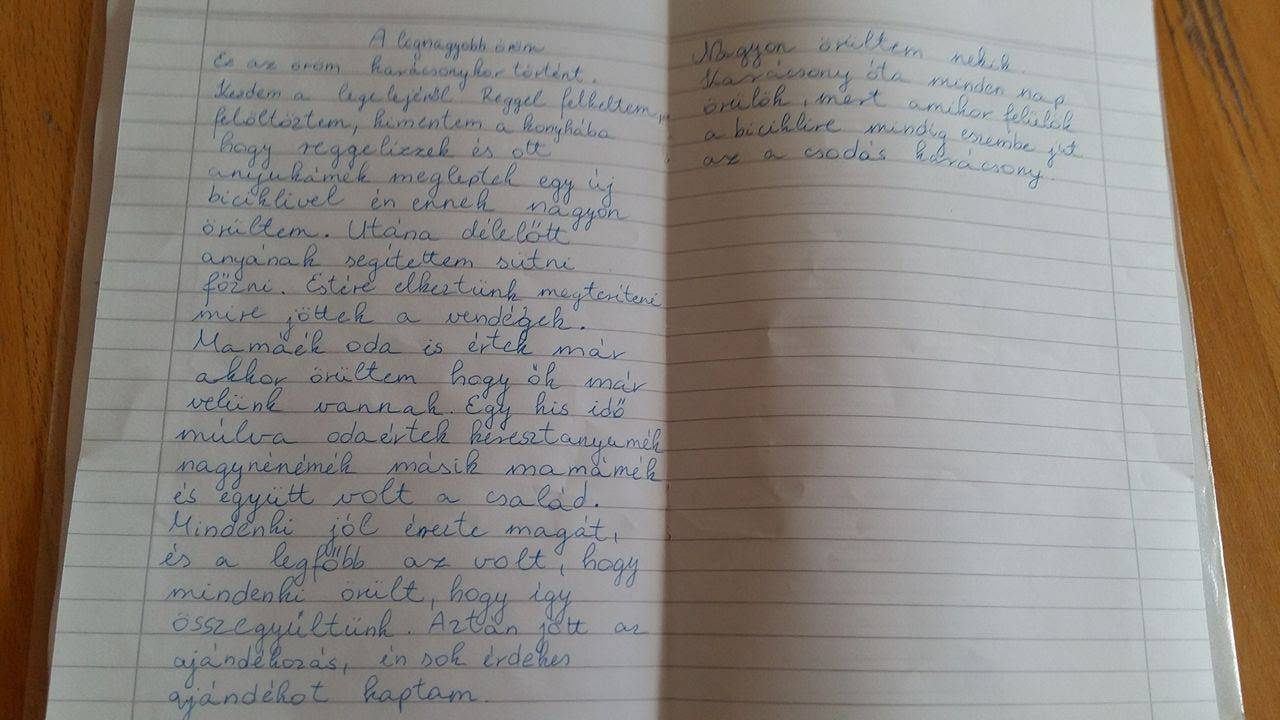 A legnagyobb öröm
És az öröm karácsonykor történt.
Kezdem a legelejéről. Reggel felkeltem,
felöltöztem, kimentem a konyhába
hogy reggelizzek és ott
anyukámék megleptek egy új
biciklivel én ennek nagyon
örültem. Utána délelőtt
anyának segítettem sütni
főzni. Estére elkeztünk megteríteni
mire jöttek a vendégek.
Mamáék oda is értek már
akkor örültem hogy ők már
velünk vannak. Egy kis idő
múlva odaértek keresztanyumék
nagynénémék másik mamámék
és együtt volt a család.
Mindenki jól érezte magát,
és a legfőbb az volt, hogy
mindenki örült, hogy így
összegyűltünk. Aztán jött az
ajándékozás, én sok érdekes
ajándékot kaptam.
Nagyon örültem nekik.
Karácsony óta minden nap
örülök, mert amikor felülök
a biciklire mindig eszembe jut
az a csodás karácsony.